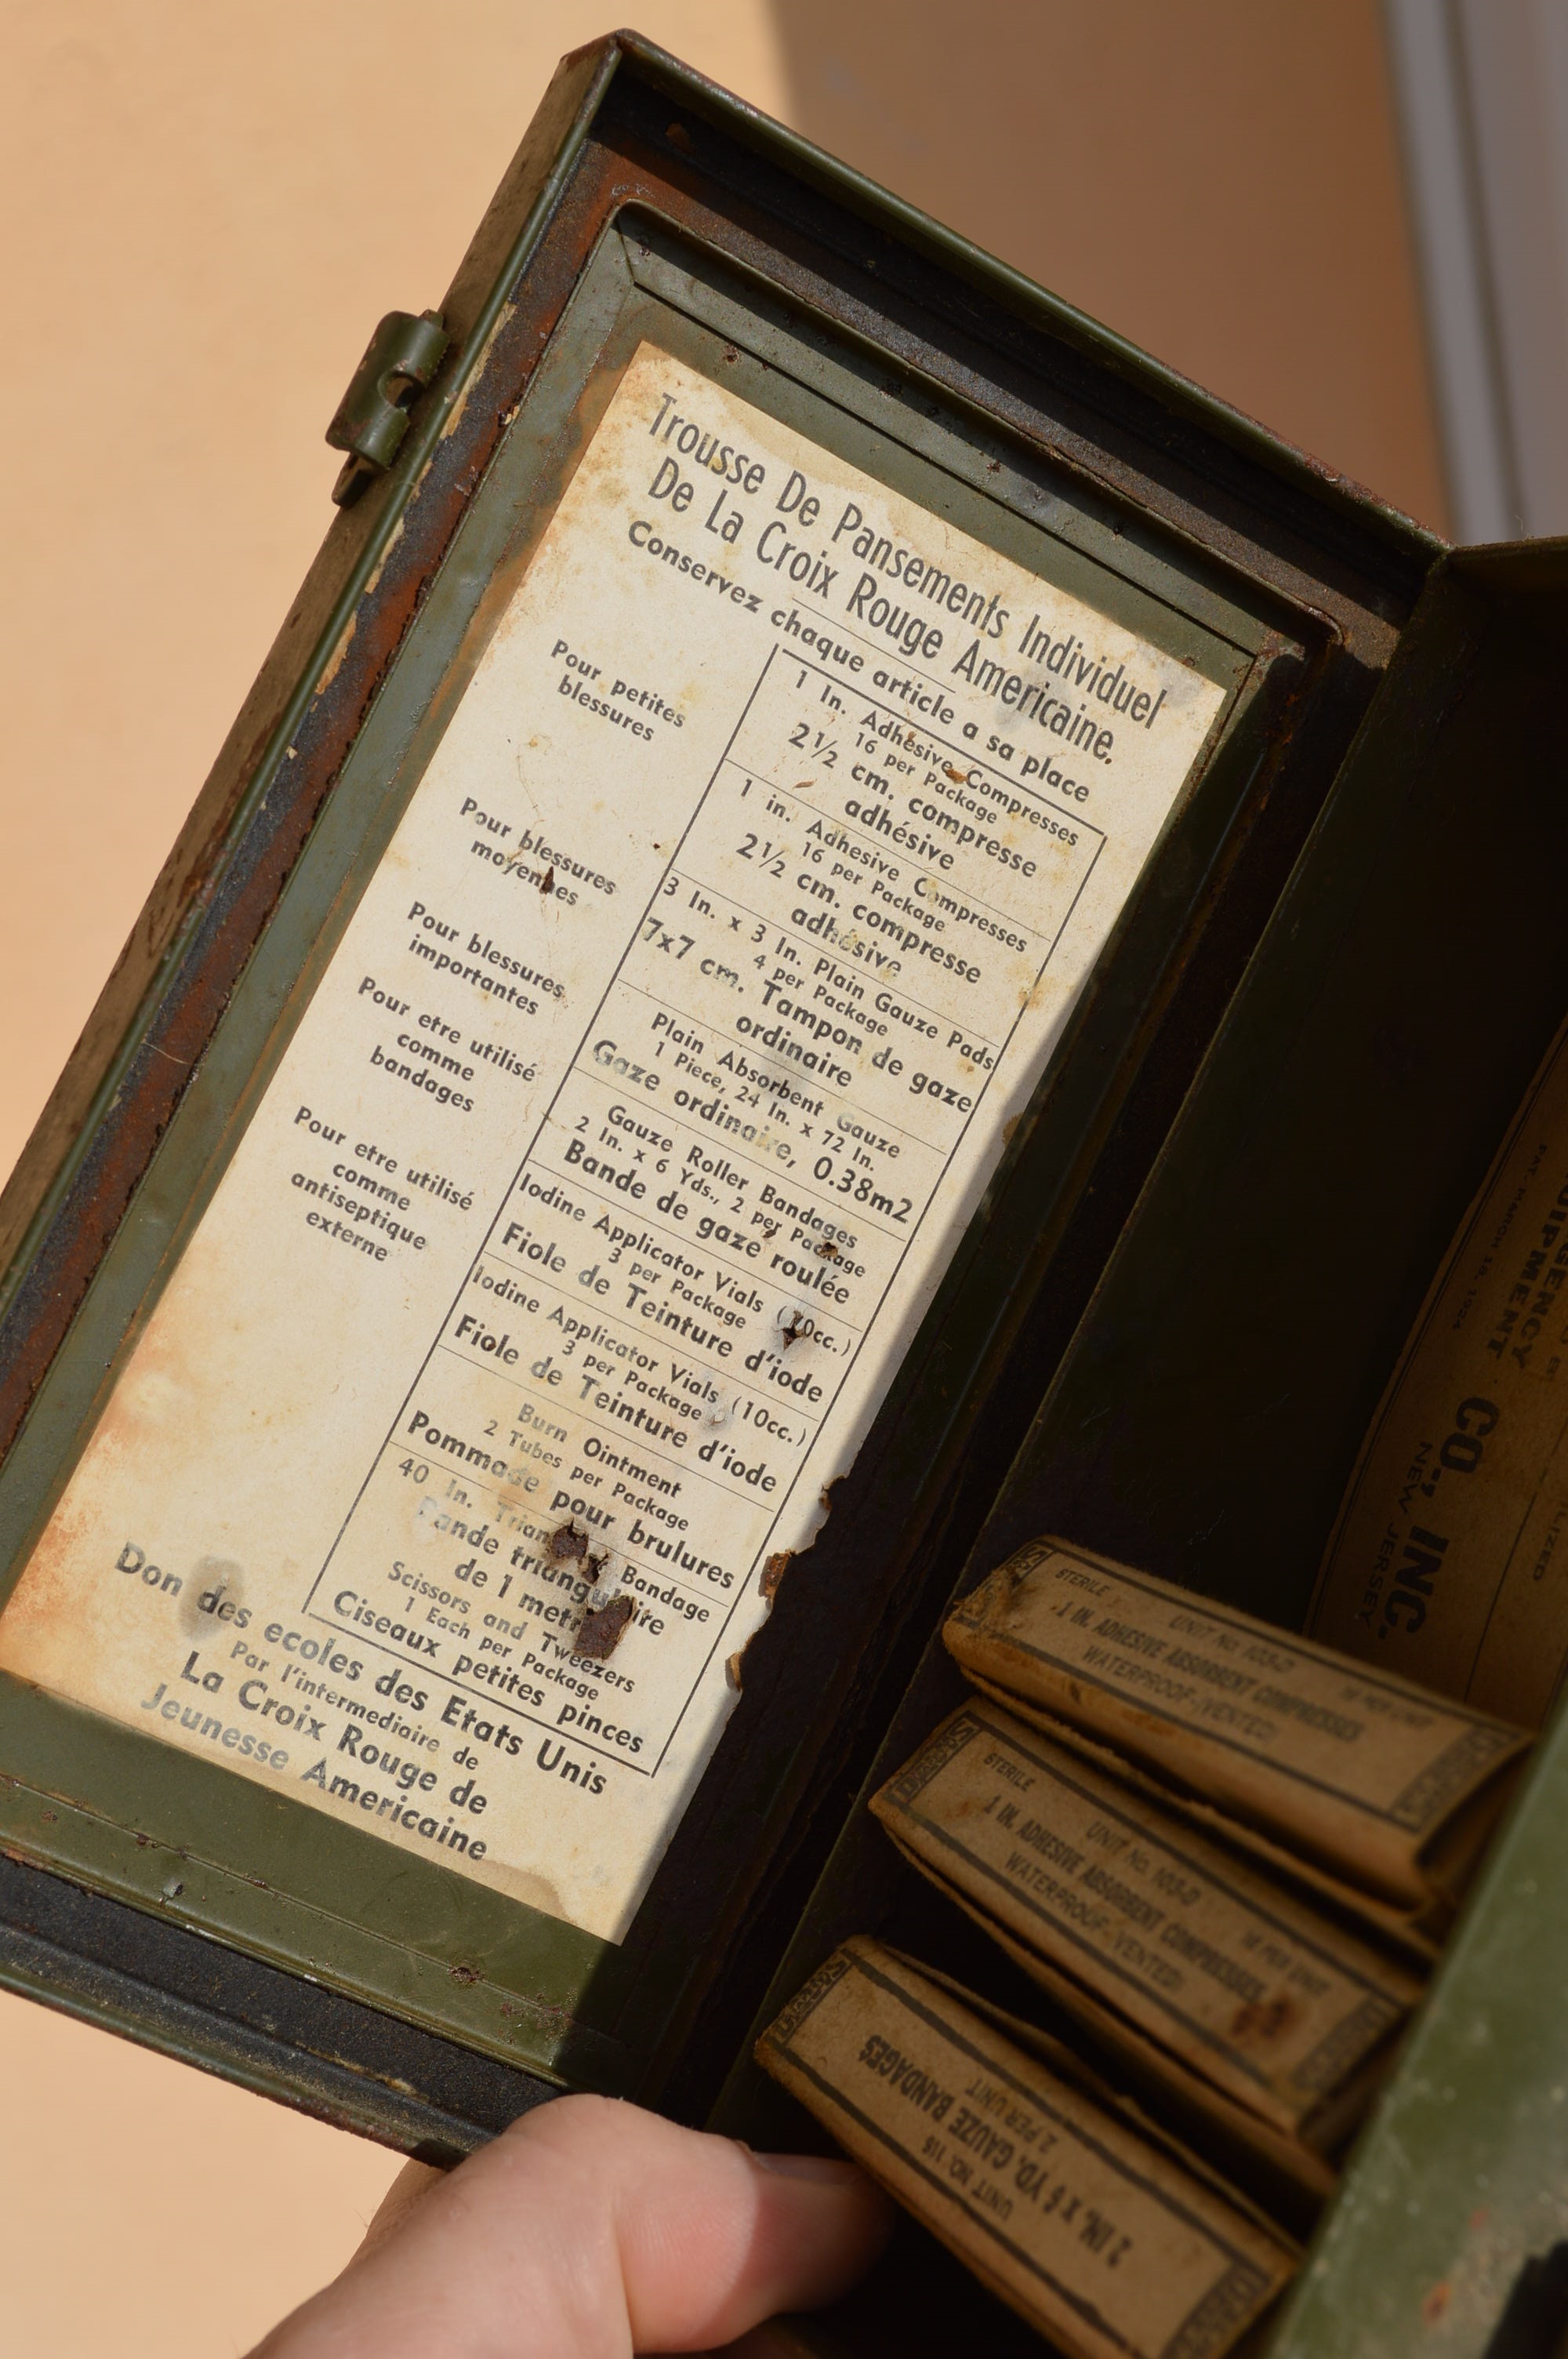 Trousse De Pansements Individuel
De La Croix Rouge Americaine.
Conservez chaque article a sa place
Pour petites
blessures
1 In. Adhesive Compresses
16 per Package
2½ cm. compresse
adhésive
Pour blessures
moyennes
1 in. Adhesive Compresses
16 per Package
2½ cm. compresse
adhésive
Pour blessures
importantes
3 In. x 3 In. Plain Gauze Pads
4 per Package
7x7 cm. Tampon de gaze
ordinaire
Pour etre utilisé
comme
bandages
Plain Absorbent Gauze
1 Piece, 24 In. x 72 In.
Gaze ordinaire, 0.38m2
Gauze Roller Bandages
2 In. x 6 Yds., 2 per Package
Bande de gaze roulée
Pour etre utilisé
comme
antiseptique
externe
Iodine Applicator Vials (10cc.)
3 per Package
Fiole de Teinture d'iode
Iodine Applicator Vials (10cc.)
3 per Package
Fiole de Teinture d'iode
Burn Ointment
2 Tubes per Package
Pommade pour brulures
40 In. Bandage
Bande triangulaire
de 1 metre
Scissors and Tweezers
1 Each per Package
Ciseaux petites pinces
Don des ecoles des Etats Unis
Par l'intermediaire de
La Croix Rouge de
Jeunesse Americaine
EQUIPMENT
CO., INC.
NEW JERSEY
PAT. MARCH 18, 1924
STERILE UNIT NO. 103-D 16 PER UNIT
1 IN. ADHESIVE ABSORBENT COMPRESSES
WATERPROOF-(VENTED)
STERILE UNIT NO. 103-D 16 PER UNIT
1 IN. ADHESIVE ABSORBENT COMPRESSES
WATERPROOF-(VENTED)
UNIT NO. 115
2 IN. x 6 YD. GAUZE BANDAGES
2 PER UNIT